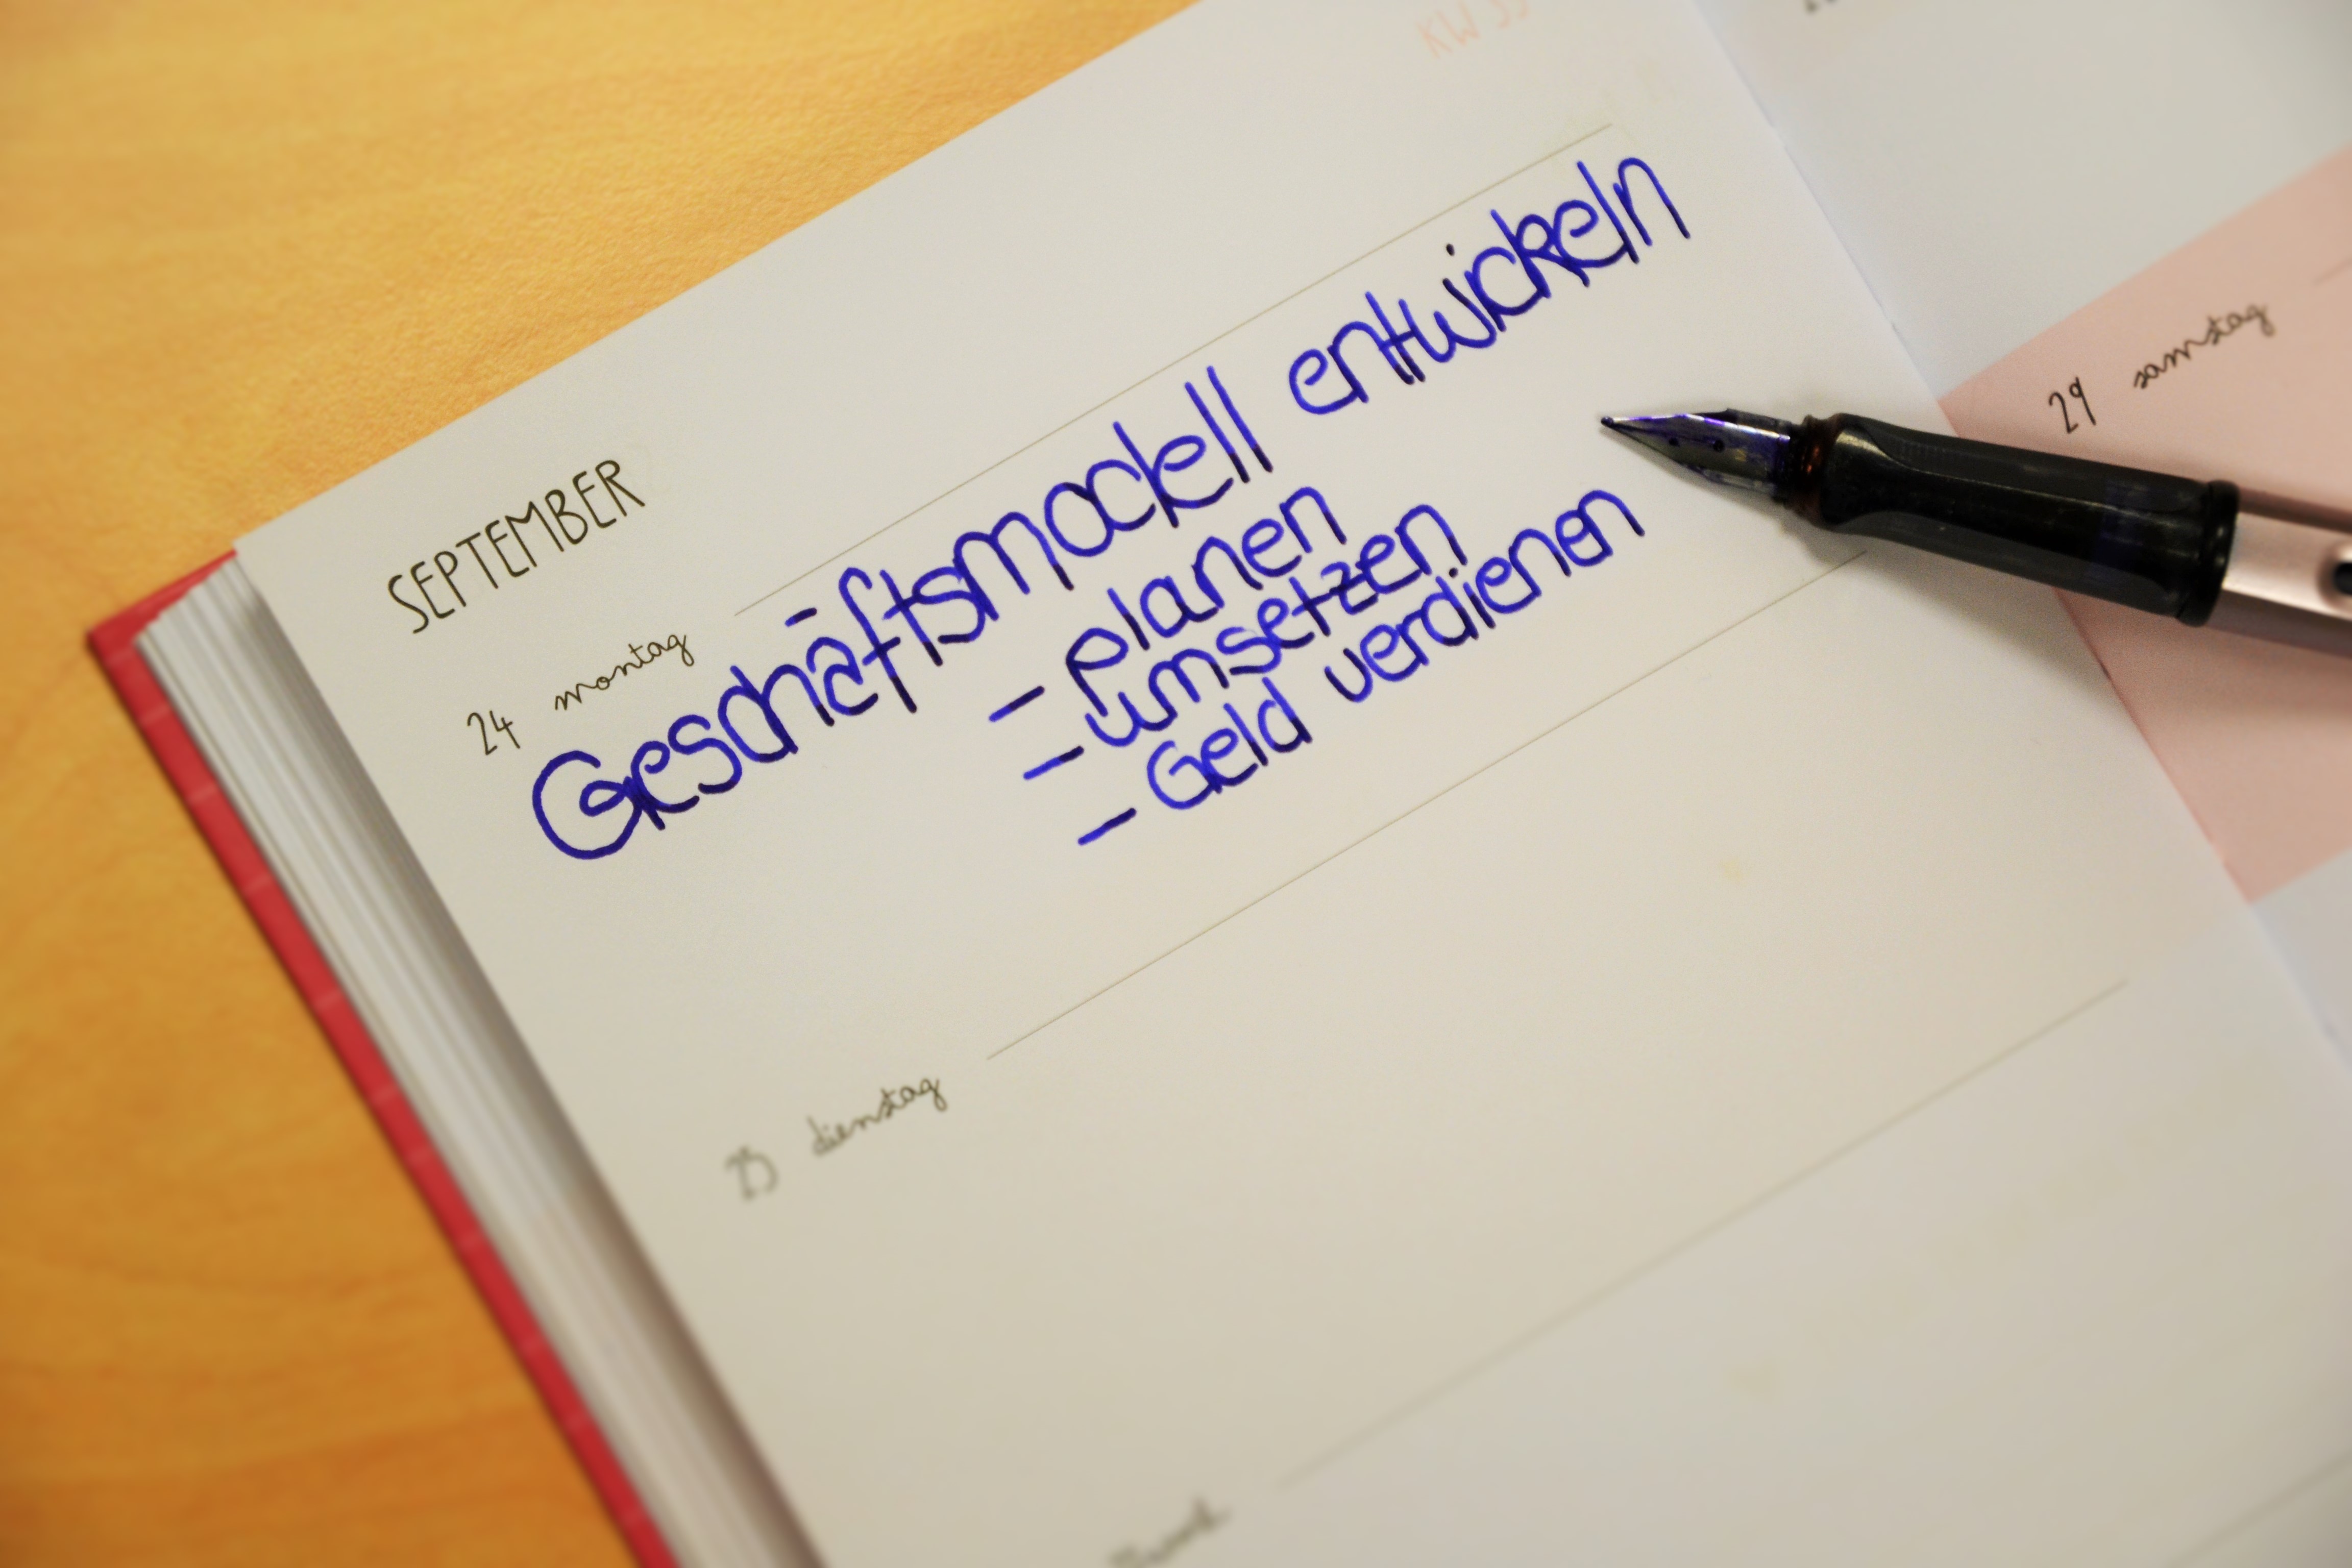 SEPTEMBER
24 montag
Geschäftsmodell entwickeln
- planen
- umsetzen
- Geld verdienen
25 dienstag
29 samstag